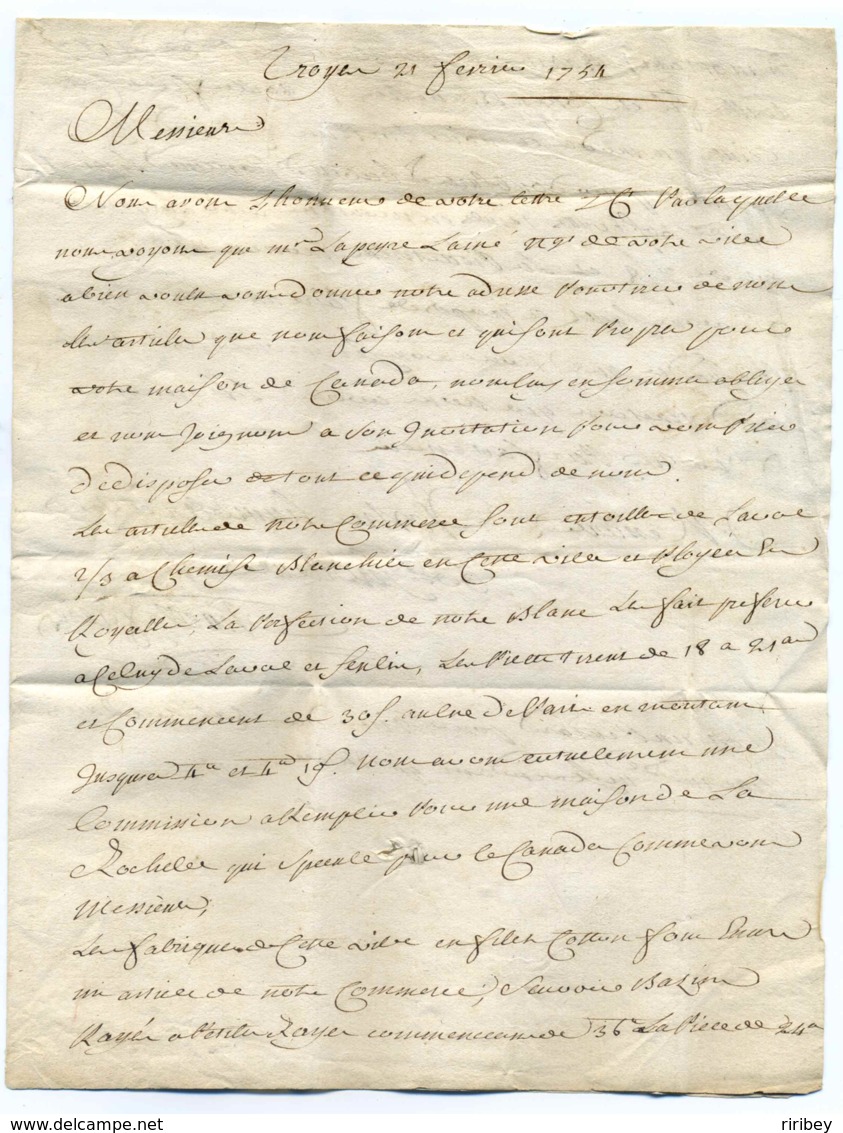 Troyes 21 fevrier 1754
Messieurs
Nous avons L'honneur de votre lettre Par laquelle
nous voyons que mr. Lapeyre Lainé negt de votre ville
a bien voulu vous donner notre adresse Pour tirer de nous
les articles que nous faisons et qui sont Propres pour
votre maison de Canada, nous luy en sommes obligés
et nous Joignons a son Invitation Pour vous Prier
De disposer de tout ce qui depend de nous.
Les articles de notre Commerce sont en toilles de Laval
2/3 a Chemise Blanchies en Cette ville et Ployées En
Royalles, La Perfection de notre Blanc Les fait preferer
a Celuy de Laval et Senlis, Les Pieces tirent de 18 a 21 au
et Commencent de 30s. aulne de Paris en montant
Jusques a 4tt et 4tt 10s. nous avons actuellement une
Commission a Remplir Pour une maison de La
Rochelle qui specule pour le Canada Comme vous
Messieurs,
Les fabriques de Cette ville en fil et Cotton font Encore
un article de notre Commerce, Scavoir Bazins
Rayés a Petites Rayes commencans de 36tt La Piece de 24 a
riribey